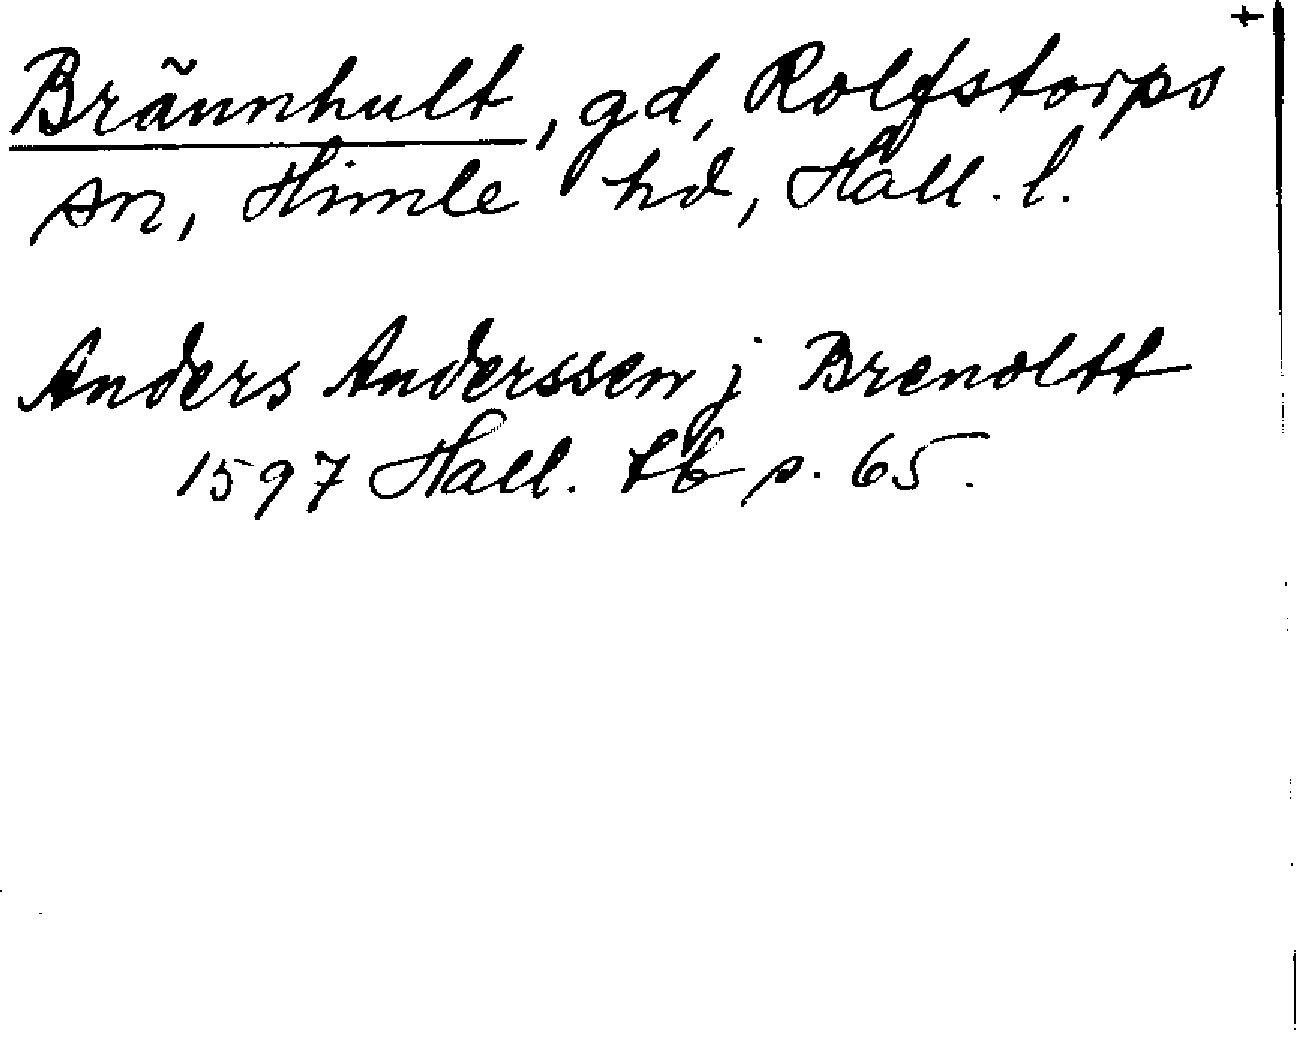 +
Brännhult, gd, Rolfstorps
sn, Himle hd, Hall. l.
Anders Anderssen j Brenoltt
1597 Hall. tb p. 65.